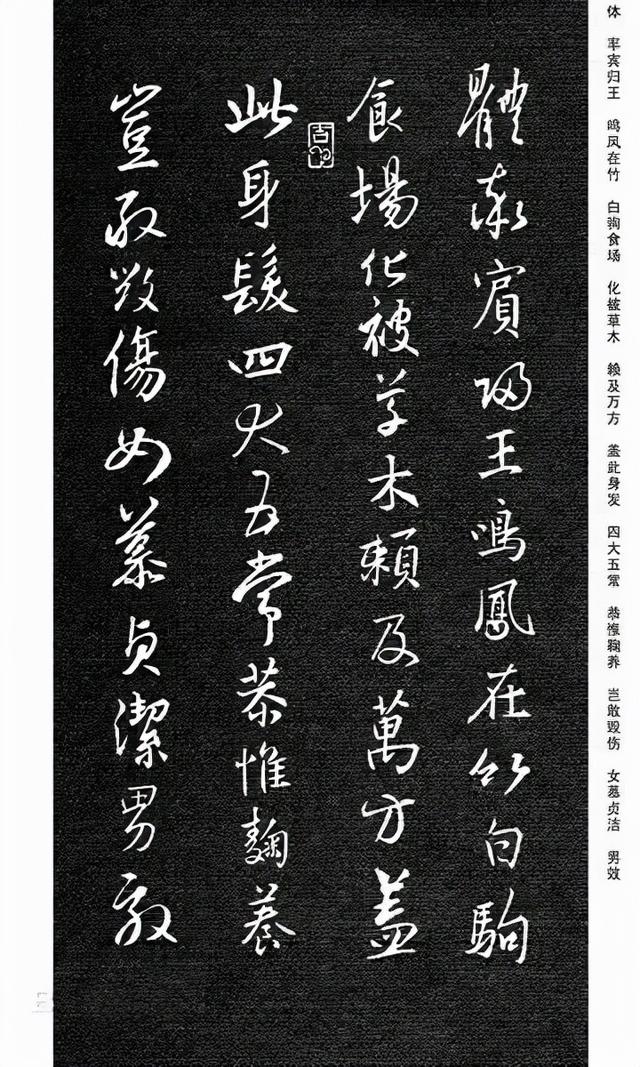 體率賓歸王鳴鳳在竹白駒
食場化被草木賴及萬方蓋
此身髮四大五常恭惟鞠養
豈敢毀傷女慕貞潔男效
体 率宾归王 鸣凤在竹 白驹食场 化被草木 赖及万方 盖此身发 四大五常 恭惟鞠养 岂敢毁伤 女慕贞洁 男效